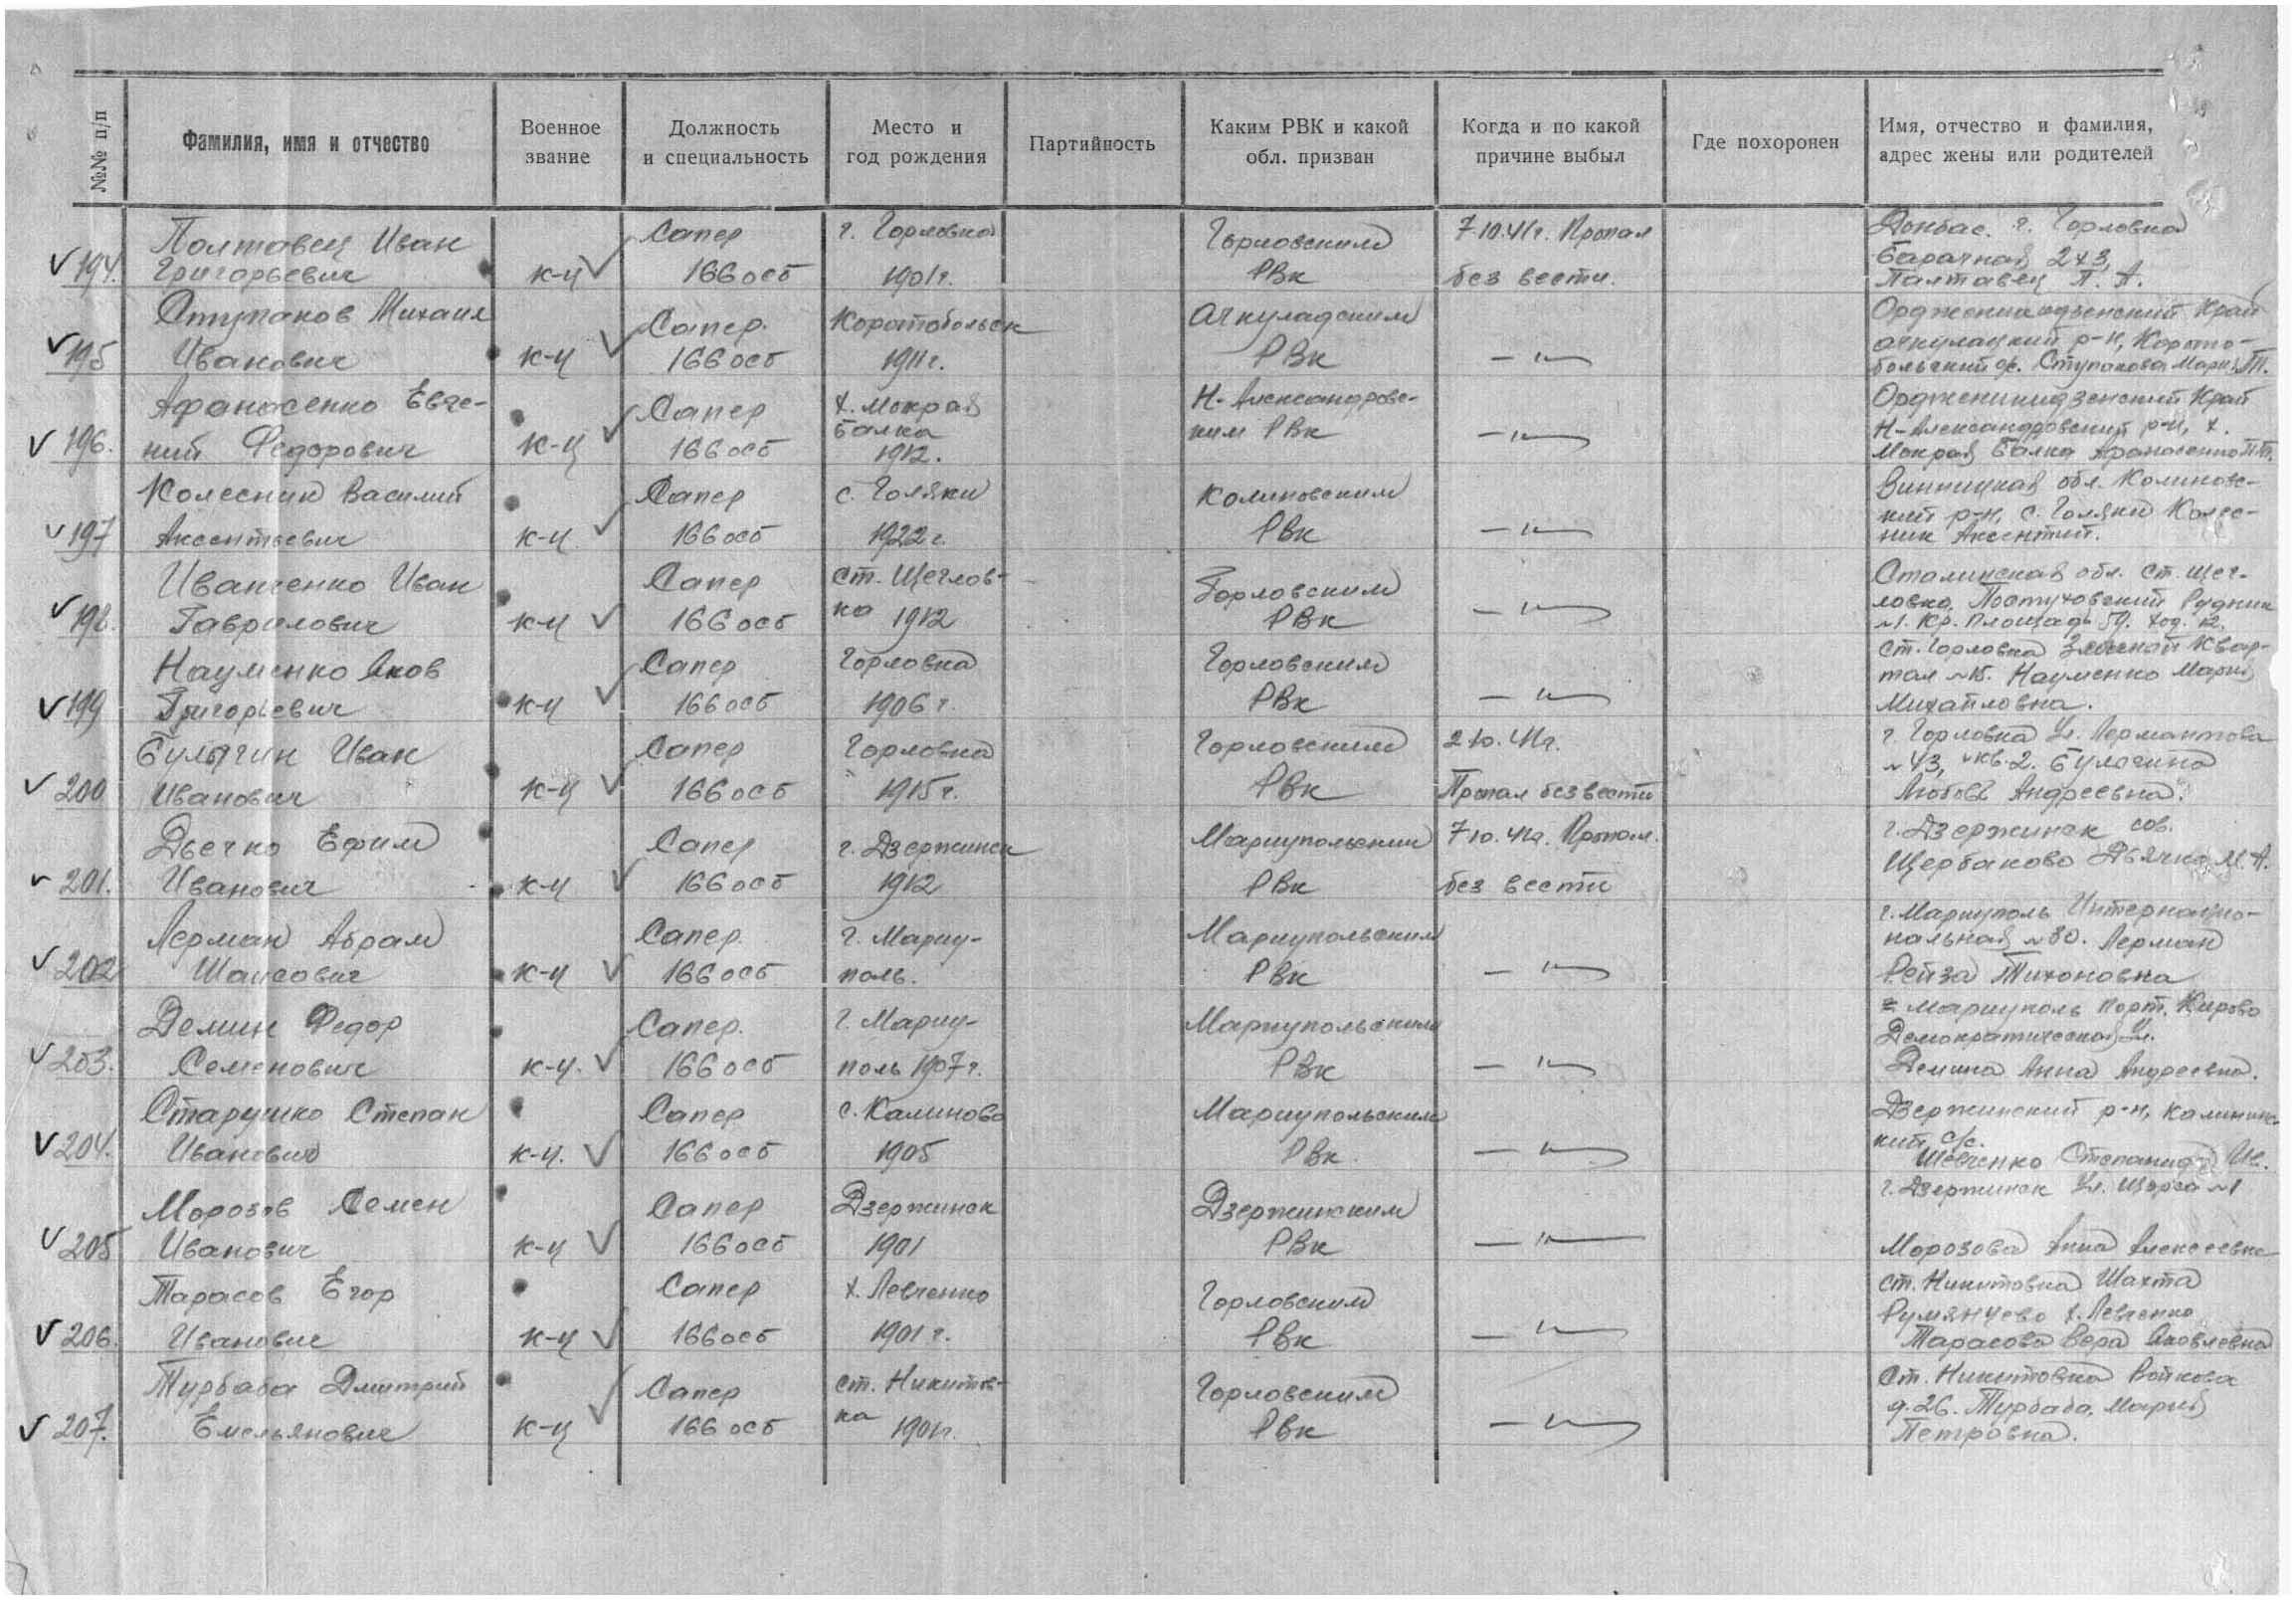 №№ п/п
Фамилия, имя и отчество
Военное
звание
Должность
и специальность
Место и
год рождения
Партийность
Каким РВК и какой
обл. призван
Когда и по какой
причине выбыл
Где похоронен
Имя, отчество и фамилия,
адрес жены или родителей
194. Полтавец Иван
Григорьевич
к-ц
Сапер
166 осб
г. Горловка
1901г.
Горловским
РВк
7.10.41г. Пропал
без вести.
Донбас. г. Горловка
Барачная 2х3,
Палтавец П. А.
195 Ступаков Михаил
Иванович
к-ц
Сапер.
166 осб
Каратобольск
1911г.
Ачкуладским
РВк
— " —
Орджоникидзенский Край
ачкулацкий р-н, Карато-
больский с/с. Ступакова Мария Т.
196. Афанасенко Евге-
ний Федорович
к-ц
Сапер
166 осб
х. Мокрая
Балка
1912.
Н-Александровс-
ким РВк
— " —
Орджоникидзенский Край
Н-Александровский р-н, х.
Мокрая Балка Афанасенко
197 Колесник Василий
Аксентьевич
к-ц
Сапер
166 осб
с. Голяки
1922г.
Калиновским
РВк
— " —
Винницкая обл. Калиновс-
кий р-н, с. Голяки Колес-
ник Аксентий.
198. Иванченко Иван
Гаврилович
к-ц
Сапер
166 осб
ст. Щеглов-
ка 1912
Горловским
РВк
— " —
Сталинская обл. ст. Щег-
ловка. Пастуховский Рудник
№1. Кр. Площадь 59.
199 Науменко Яков
Григорьевич
к-ц
Сапер
166 осб
Горловка
1906г.
Горловским
РВк
— " —
ст. Горловка Квар-
тал №15. Науменко Мария
Михайловна.
200 Булыгин Иван
Иванович
к-ц
Сапер
166 осб
Горловка
1915г.
Горловским
РВк
2.10.41г.
Пропал без вести
г. Горловка Ул. Лермантова
№43, кв. 2. Булыгина
Любовь Андреевна.
201. Дьечко Ефим
Иванович
к-ц
Сапер
166 осб
г. Дзержинск
1912
Мариупольским
РВк
7.10.41г. Пропал.
без вести
г. Дзержинск сов.
Щербаково Дьячко М. А.
202 Лерман Абрам
Шаисович
к-ц
Сапер.
166 осб
г. Мариу-
поль.
Мариупольским
РВк
— " —
г. Мариуполь Интернацио-
нальная №80. Лерман
Рейза Тихоновна
203. Демин Федор
Семенович
к-ц.
Сапер.
166 осб
г. Мариу-
поль 1907г.
Мариупольским
РВк
— " —
г. Мариуполь Порт. Кирово
Демократическая Ул.
Демина Анна Андреевна.
204. Старушко Степан
Иванович
к-ц.
Сапер
166 осб
с. Калиново
1905
Мариупольским
РВк
— " —
Дзержинский р-н, Калининс-
кий с/с.
Шевченко Степанида Ив.
205 Морозов Семен
Иванович
к-ц
Сапер
166 осб
Дзержинск
1901
Дзержинским
РВк
— " —
г. Дзержинск Ул. Щорса №1
Морозова Анна Алексеевна
206. Тарасов Егор
Иванович
к-ц
Сапер
166 осб
х. Левченко
1901г.
Горловским
РВк
— " —
ст. Никитовка Шахта
Румянцево х. Левченко
Тарасова Вера Яковлевна
207. Турбаба Дмитрий
Емельянович
к-ц
Сапер
166 осб
ст. Никитов-
ка 1901г.
Горловским
РВк
— " —
Ст. Никитовка Войкова
д. 26. Турбаба Мария
Петровна.